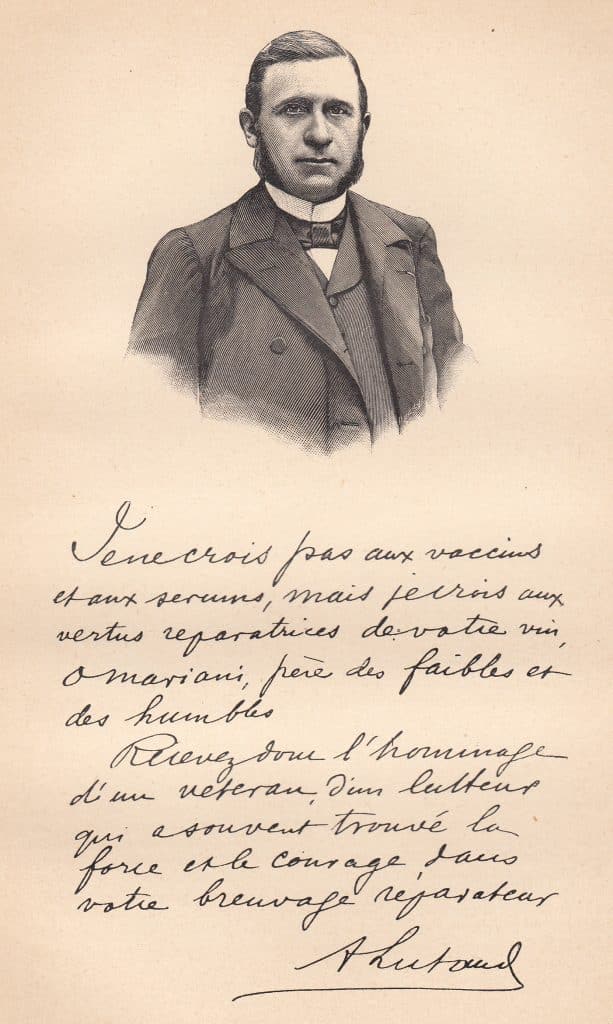 Je ne crois pas aux vaccins
et aux serums, mais je crois aux
vertus reparatrices de votre vin,
O Mariani, père des faibles et
des humbles
Recevez donc l'hommage
d'un veteran, d'un lutteur
qui a souvent trouvé la
force et le courage dans
votre breuvage réparateur
A Lutaud